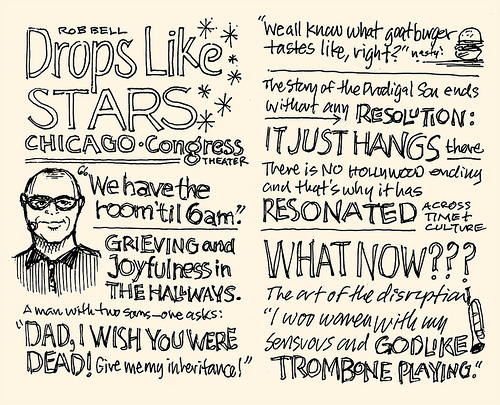 ROB BELL
Drops Like
STARS
CHICAGO • Congress
THEATER
"We have the
room 'til 6am."
GRIEVING and
Joyfulness in
THE HALLWAYS.
A man with two sons—one asks:
"DAD, I WISH YOU WERE
DEAD! Give me my inheritance!"
"We all know what goatburger
tastes like, right?" nasty!
The story of the Prodigal Son ends
without any RESOLUTION:
IT JUST HANGS there
There is NO HOLLYWOOD ending
and that's why it has
RESONATED ACROSS
TIME +
CULTURE
WHAT NOW???
The art of the disruption
"I woo women with my
sensuous and GODLIKE
TROMBONE PLAYING."